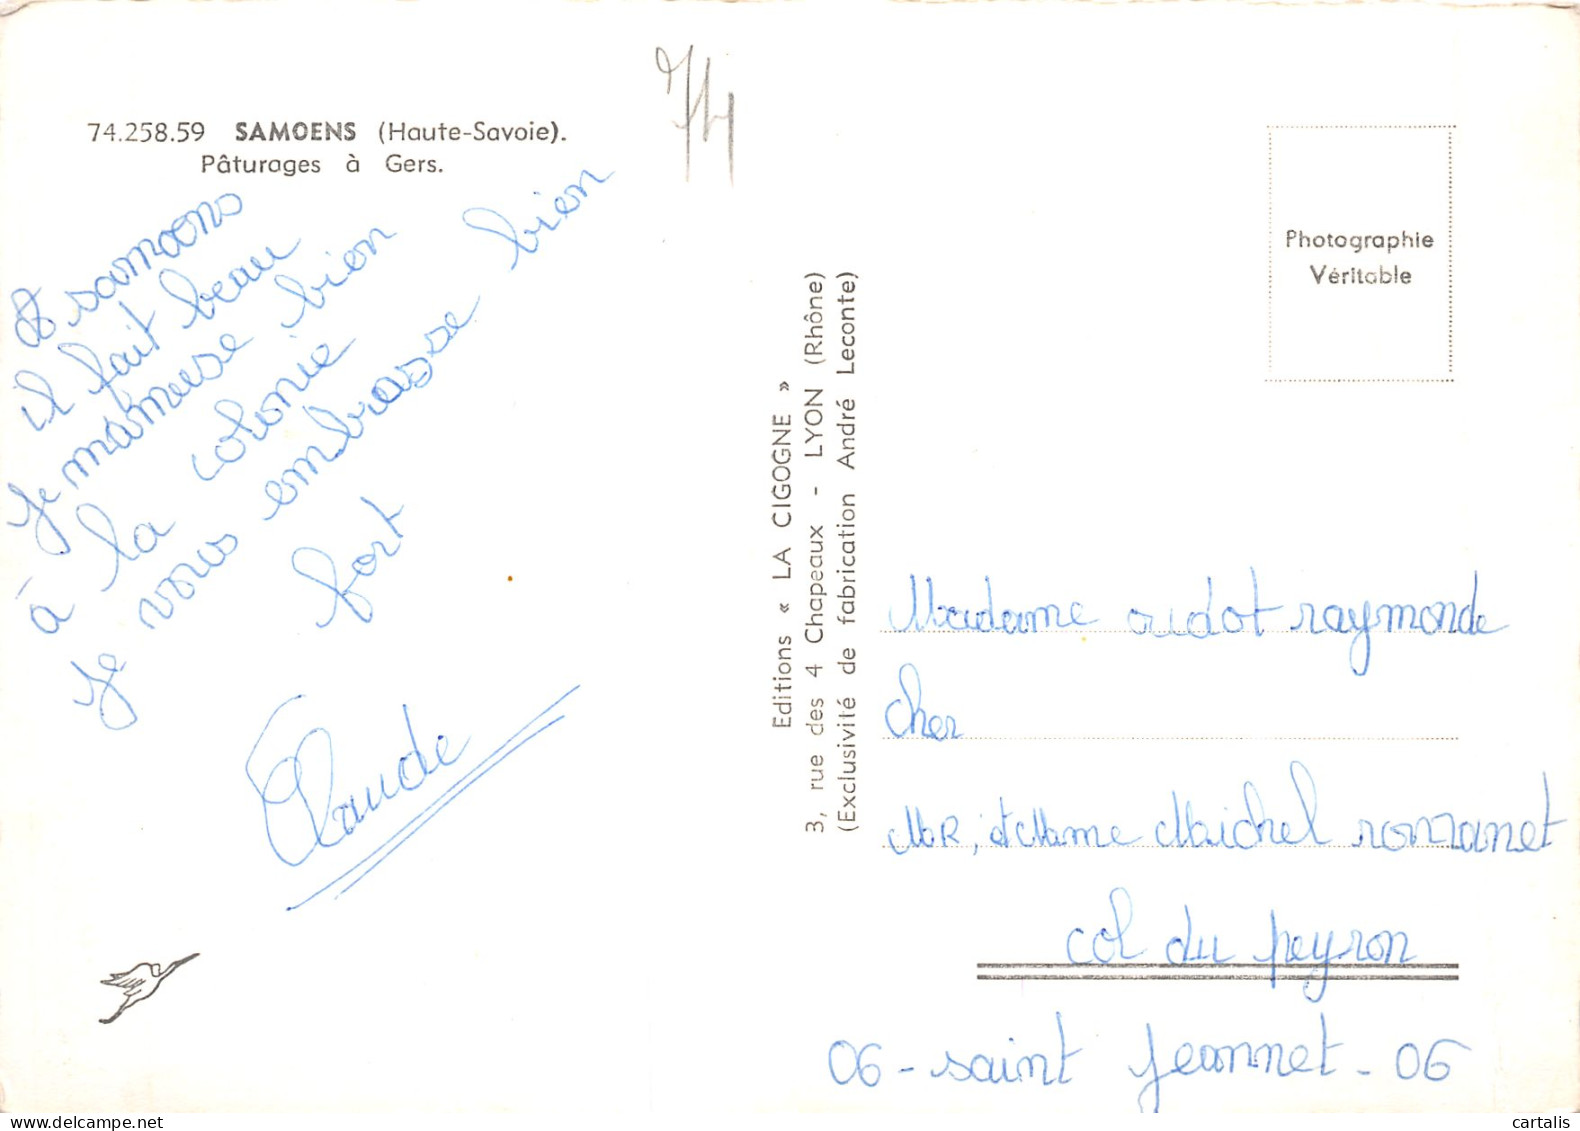 74.258.59 SAMOENS (Haute-Savoie).
Pâturages à Gers.
74
A samoens
il fait beau
Je mamuse bien
à la colonie
Je vous embrasse bien
fort
Claude
Editions « LA CIGOGNE »
3, rue des 4 Chapeaux - LYON (Rhône)
(Exclusivité de fabrication André Leconte)
Photographie
Véritable
Madame oudot raymonde
cher
MR, et Mme Michel romanet
col du peyron
06 - saint Jeannet - 06
cartalis